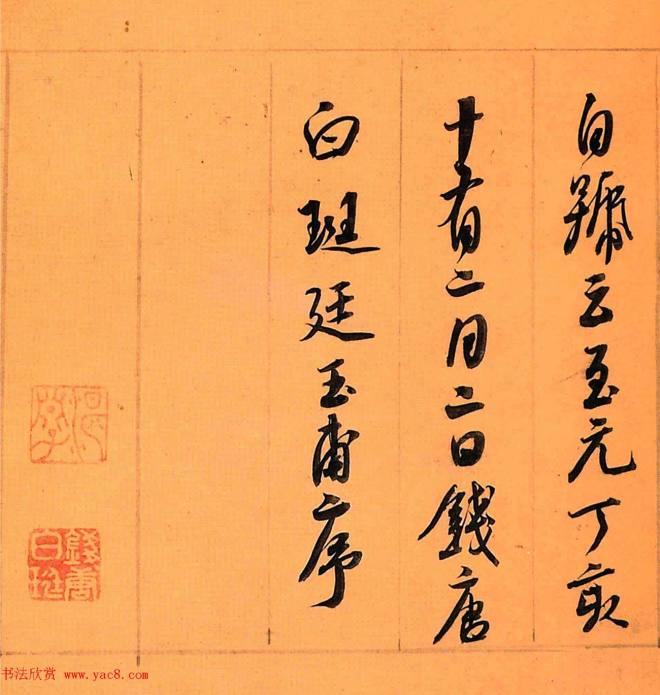 自號云至元丁亥
十有二月二日錢唐
白珽廷玉甫序
錢唐
白珽
书法欣赏 www.yac8.com